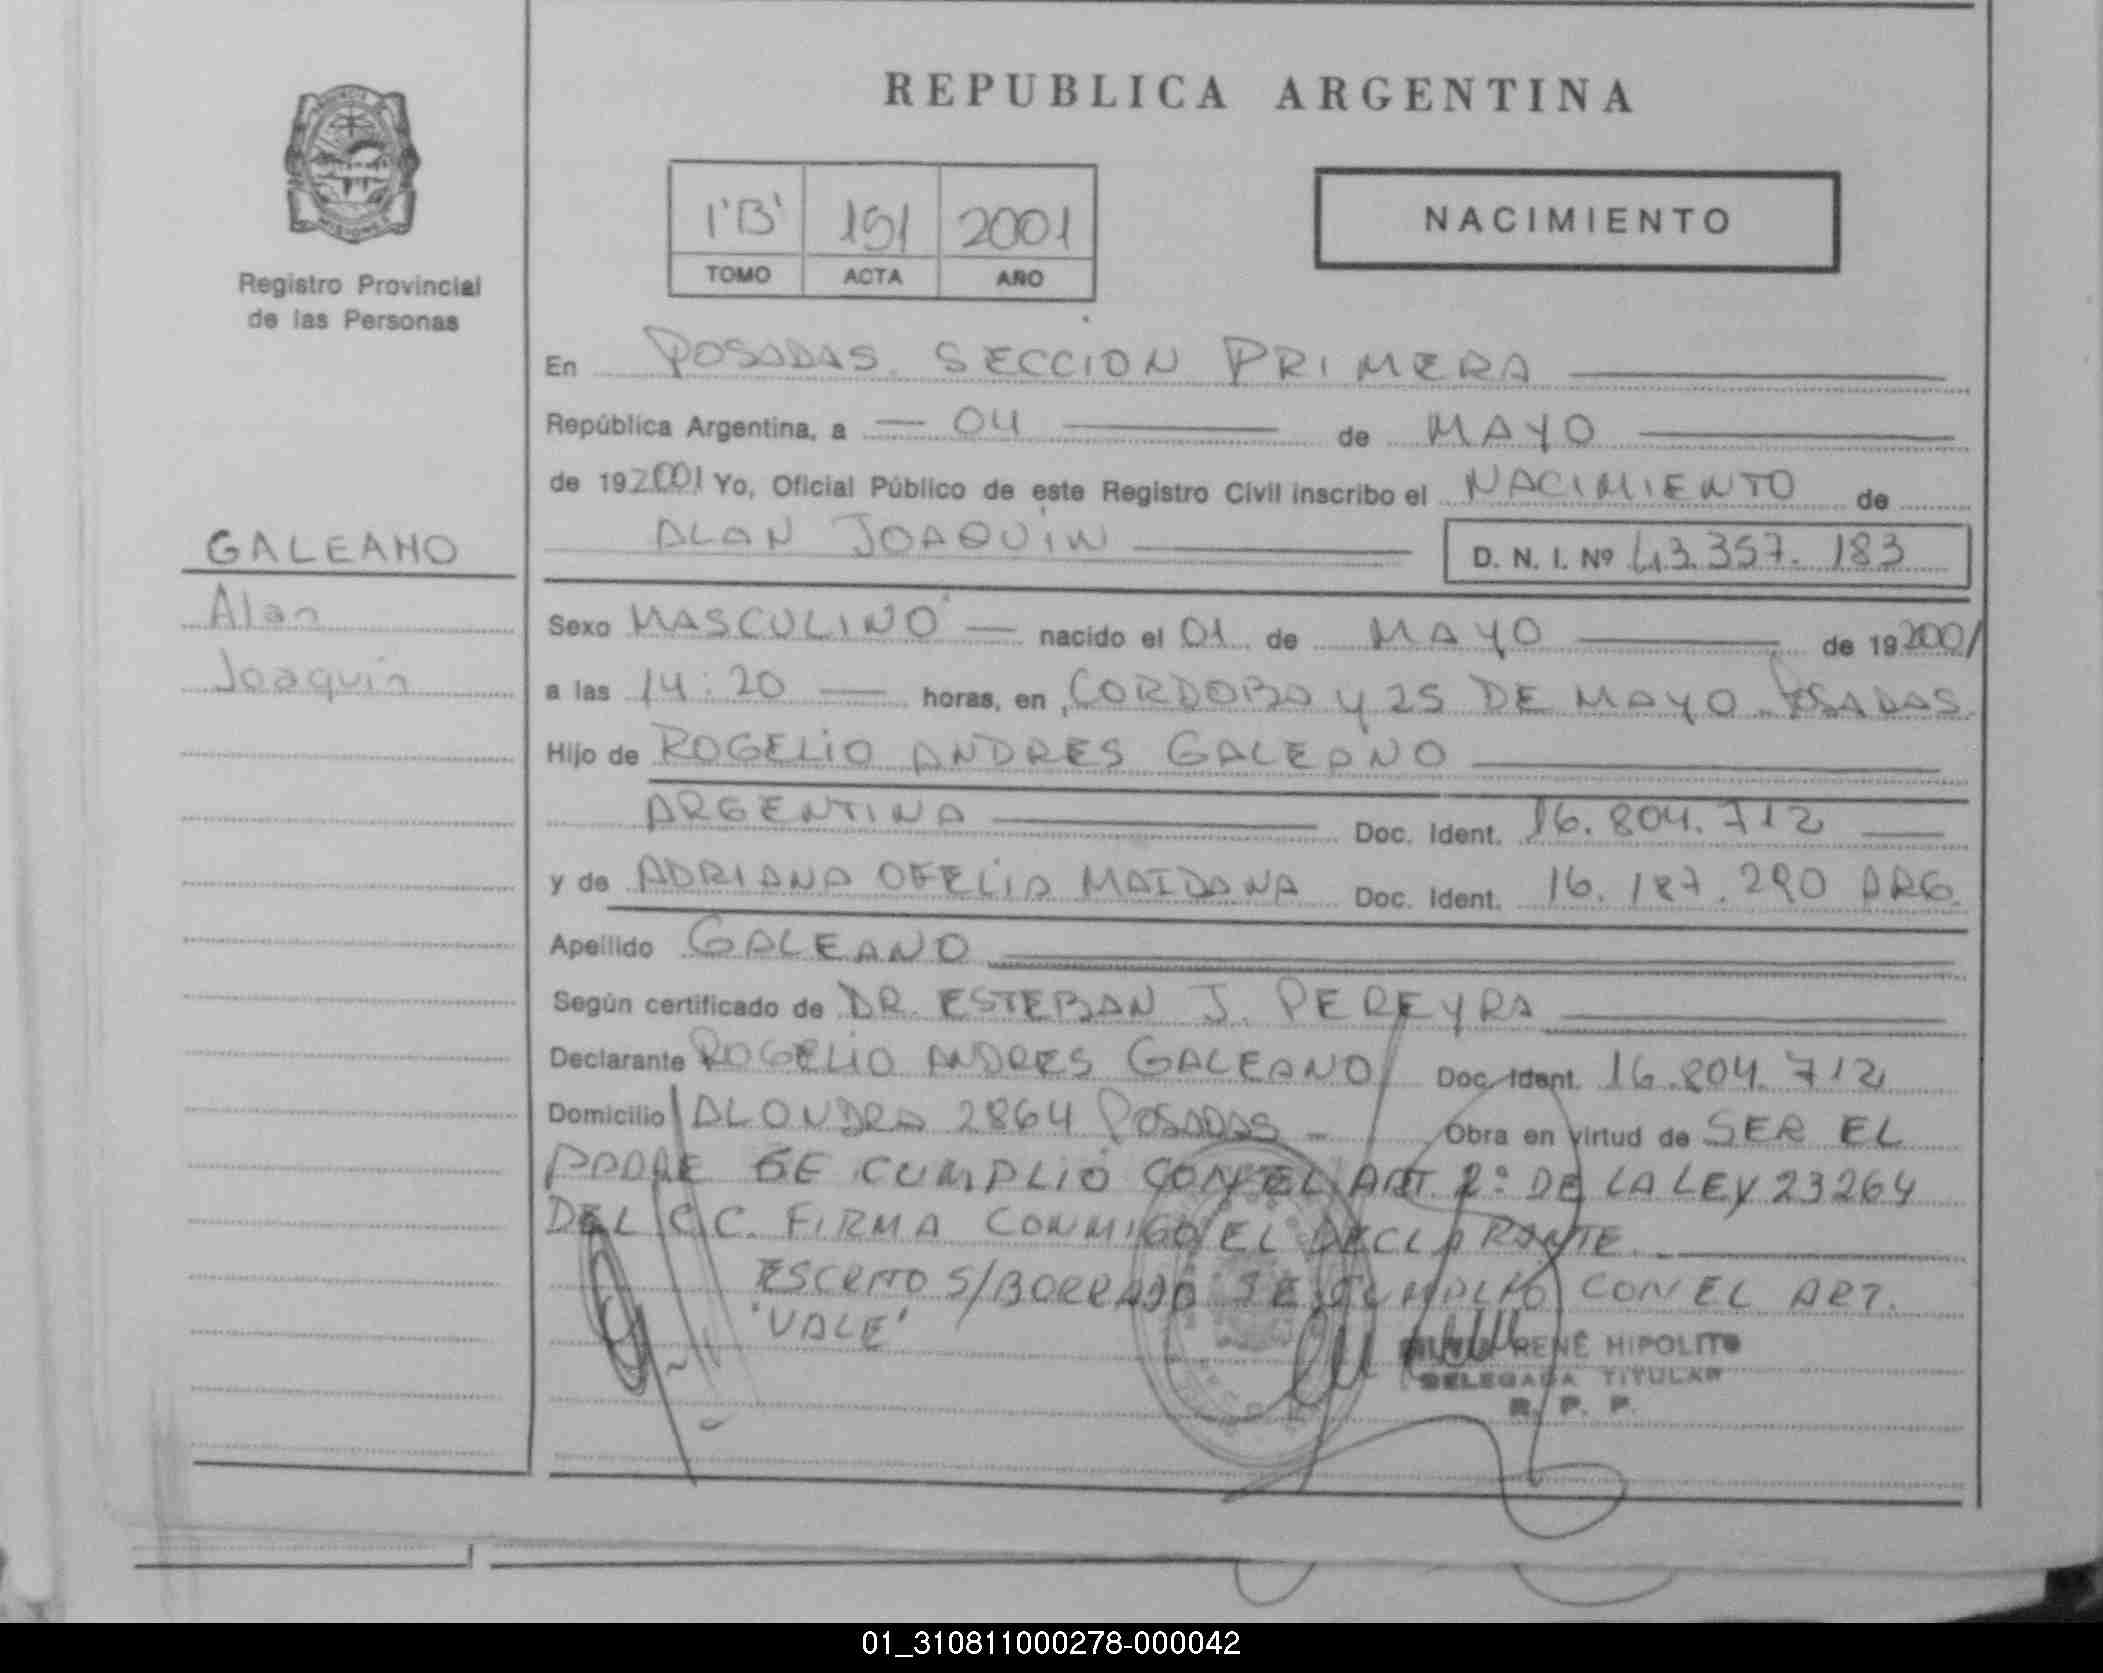 REPUBLICA ARGENTINA
1'B' 191 2001
TOMO ACTA AÑO
NACIMIENTO
Registro Provincial
de las Personas
GALEANO
Alan
Joaquin
En POSADAS. SECCION PRIMERA
República Argentina, a 04 de MAYO
de 192001 Yo, Oficial Público de este Registro Civil inscribo el NACIMIENTO de
ALAN JOAQUIN D. N. I. Nº 43.357.183
Sexo MASCULINO nacido el 01 de MAYO de 192001
a las 14:20 horas, en CORDOBA y 25 DE MAYO. POSADAS.
Hijo de ROGELIO ANDRES GALEANO
ARGENTINA Doc. Ident. 16.804.712
y de ADRIANA OFELIA MAIDANA Doc. Ident. 16.187.290 ARG.
Apellido GALEANO
Según certificado de DR. ESTEBAN J. PEREYRA
Declarante ROGELIO ANDRES GALEANO Doc. Ident. 16.804.712
Domicilio ALONDRA 2864 POSADAS - Obra en virtud de SER EL
PADRE SE CUMPLIO CON EL ART. 2º DE LA LEY 23264
DEL C.C. FIRMA CONMIGO EL DECLARANTE.
ESCRITO S/BORRADO SE CUMPLIO CON EL ART.
'VALE'
RENE HIPOLITO
DELEGADA TITULAR
R. P. P.
01_310811000278-000042